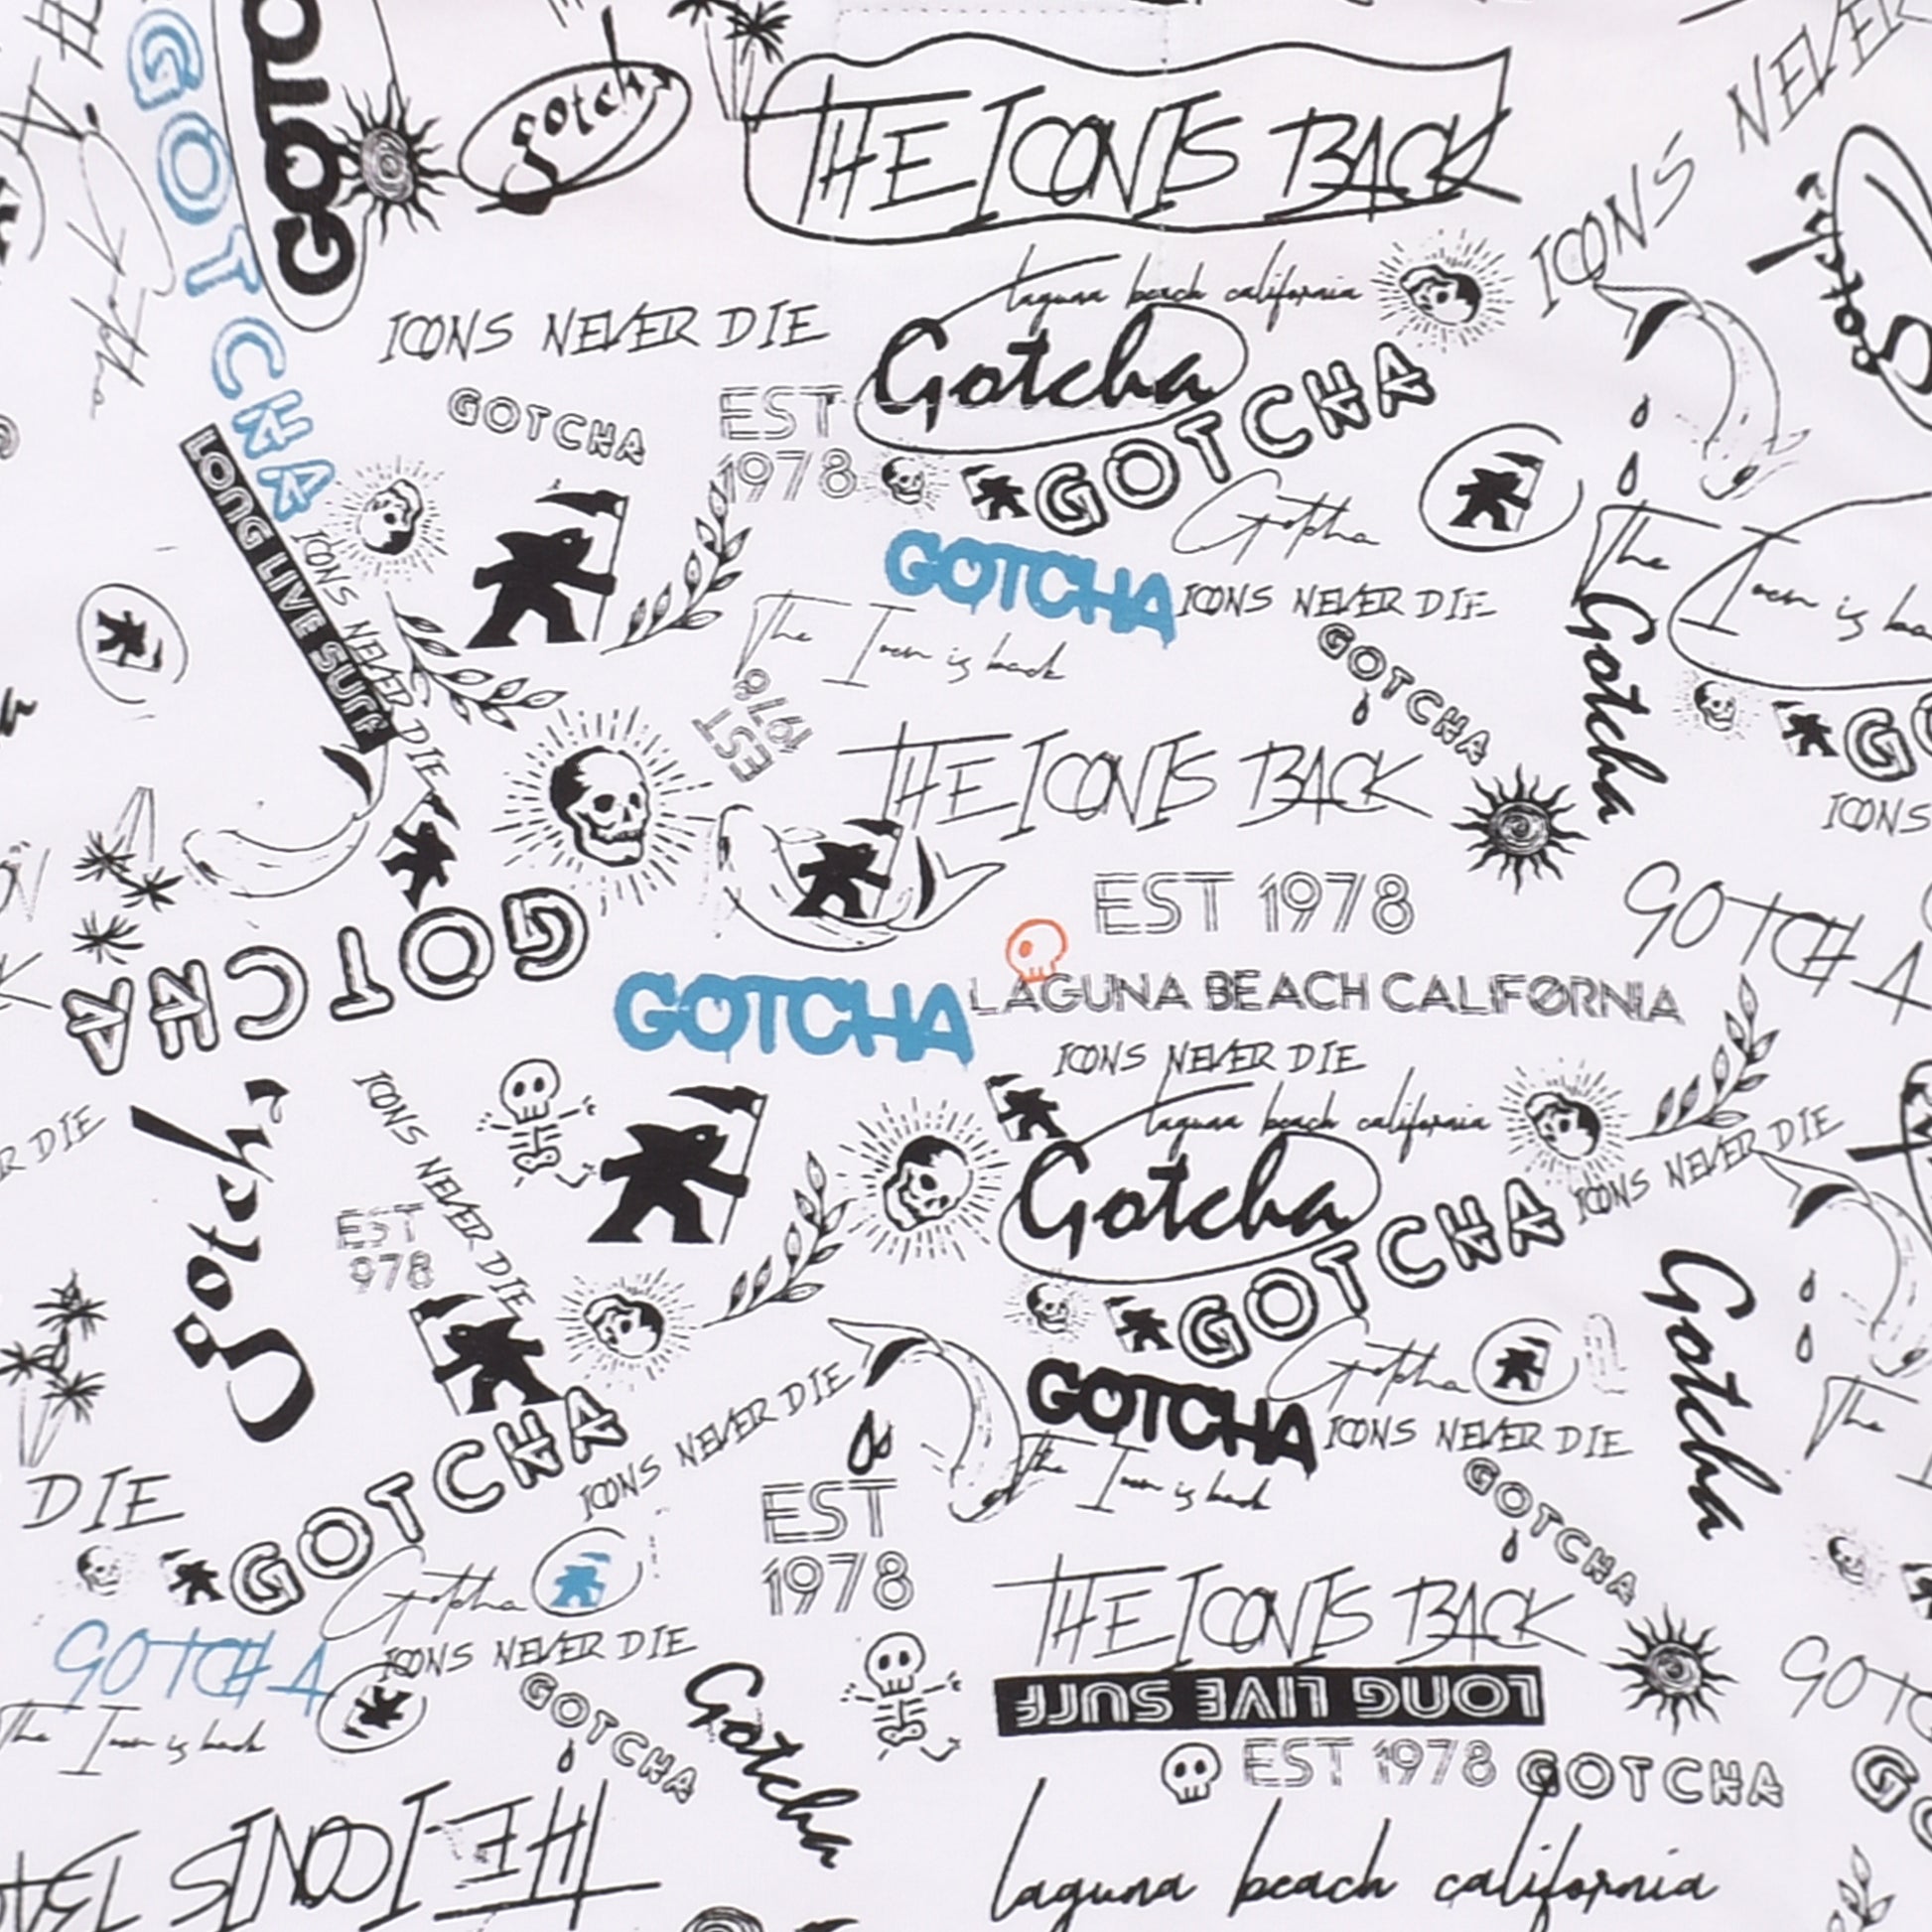 GOTCHA
GOTC
gotcha
THE ICON IS BACK
NEVER
ICONS
Gotcha
gotcha
laguna beach california
ICONS NEVER DIE
Gotcha
GOTCHA
EST
1978
GOTCHA
LONG LIVE SURF
ICONS NEVER DIE
Gotcha
GOTCHA
ICONS NEVER DIE
The Icon is back
The Icon is
GOTCHA
Gotcha
EST
1978
THE ICON IS BACK
ICONS
EST 1978
GOTCHA
GOTCHA
GOTCHA
LAGUNA BEACH CALIFORNIA
ICONS NEVER DIE
laguna beach california
R DIE
gotcha
ICONS NEVER DIE
Gotcha
ICONS NEVER DIE
GOTCHA
EST
978
Gotcha
Gotcha
GOTCHA
ICONS NEVER DIE
The
GOTCHA
ICONS NEVER DIE
The Icon is back
DIE
EST
1978
GOTCHA
Gotcha
THE ICON IS BACK
GOTCHA
ICONS NEVER DIE
GOTCHA
Gotcha
LONG LIVE SURF
GOTC
The Icon is back
EST 1978
GOTCHA
THE ICON IS
laguna beach california